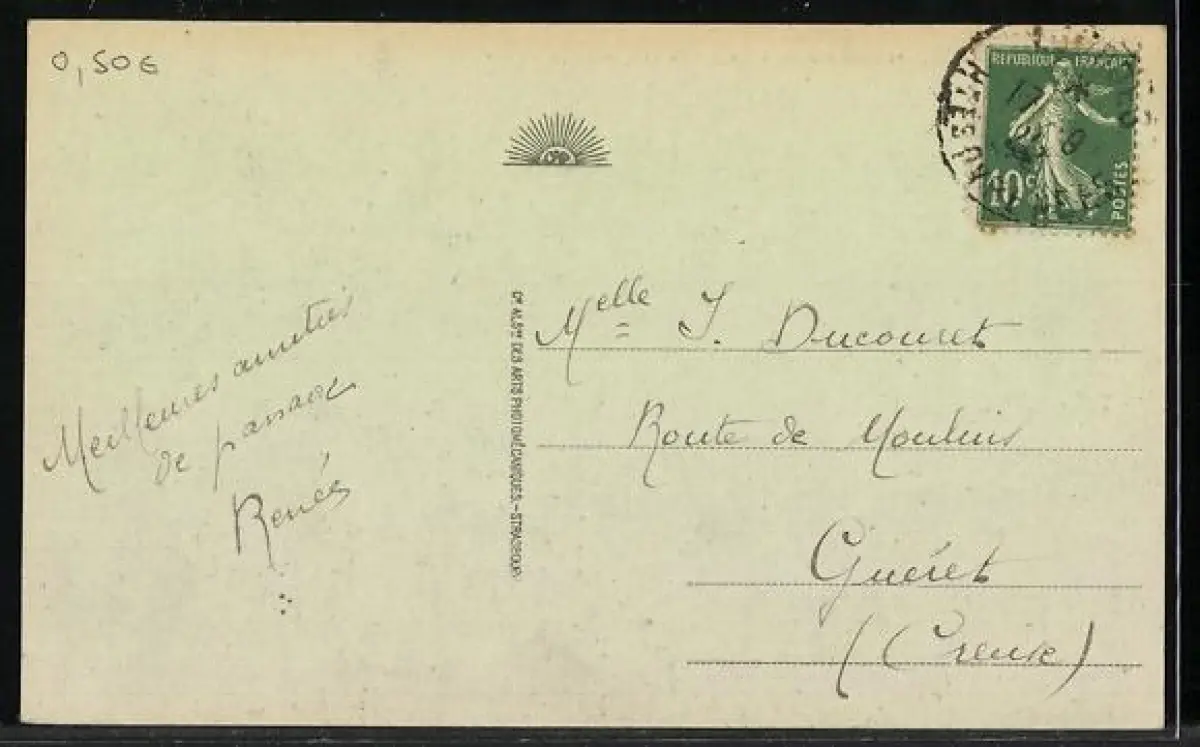 0,50€
RÉPUBLIQUE FRANÇAISE
10c
POSTES
Meilleures amitiés
de passage
Renée
Cie ALSne DES ARTS PHOTOMÉCANIQUES.-STRASBOURG
Melle J. Ducouret
Route de Moulins
Guéret
(Creuse)